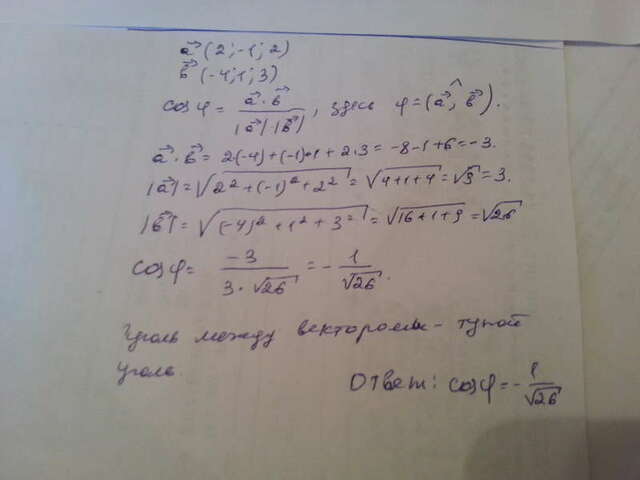 a⃗ (2; -1; 2)
b⃗ (-4; 1; 3)
cos φ = a⃗·b⃗ / |a⃗||b⃗|, здесь φ = (a⃗; b⃗).
a⃗·b⃗ = 2(-4)+(-1)·1+2·3 = -8-1+6 = -3.
|a⃗| = √2²+(-1)²+2² = √4+1+4 = √9 = 3.
|b⃗| = √(-4)²+1²+3² = √16+1+9 = √26
cos φ = -3 / 3·√26 = - 1/√26.
Угол между векторами - тупой
Ответ: cos φ = - 1/√26